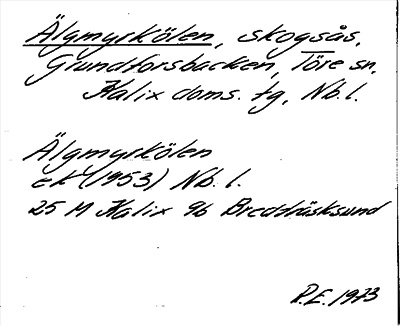 Älgmyrkölen, skogsås,
Grundforsbacken, Töre sn,
Kalix doms. tg, Nb. l.
Älgmyrkölen
ek (1953) Nb. l.
25 M Kalix 9b Breddräsksund
P.E. 1973